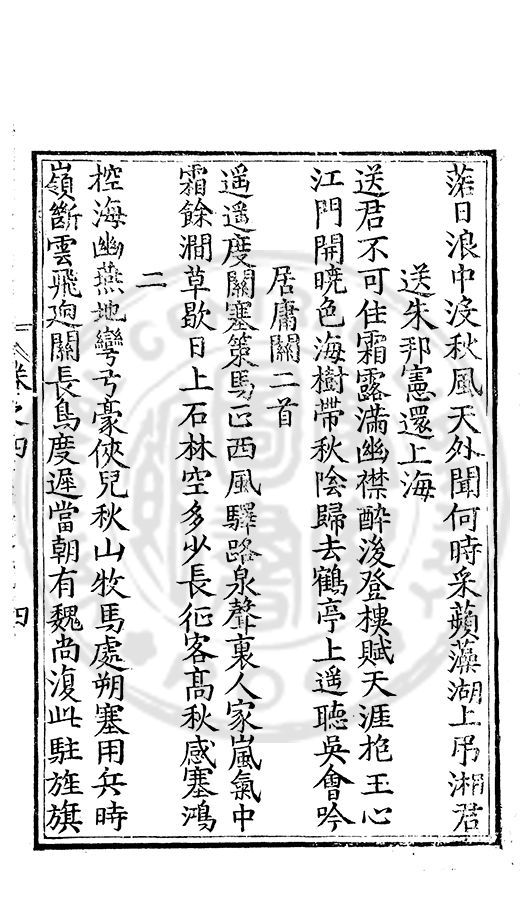 落日浪中没秋風天外聞何時采蘋藻湖上弔湘君
送朱邦憲還上海
送君不可住霜露滿幽襟醉後登樓賦天涯抱玉心
江門開曉色海樹帶秋陰歸去鶴亭上遥聽吳會吟
居庸關二首
遥遥度關塞策馬正西風驛路泉聲裏人家嵐氣中
霜餘澗草歇日上石林空多少長征客高秋感塞鴻
二
控海幽燕地彎弓豪俠兒秋山牧馬處朔塞用兵時
嶺斷雲飛迥關長鳥度遲當朝有魏尚復此駐旌旗
卷之四
四